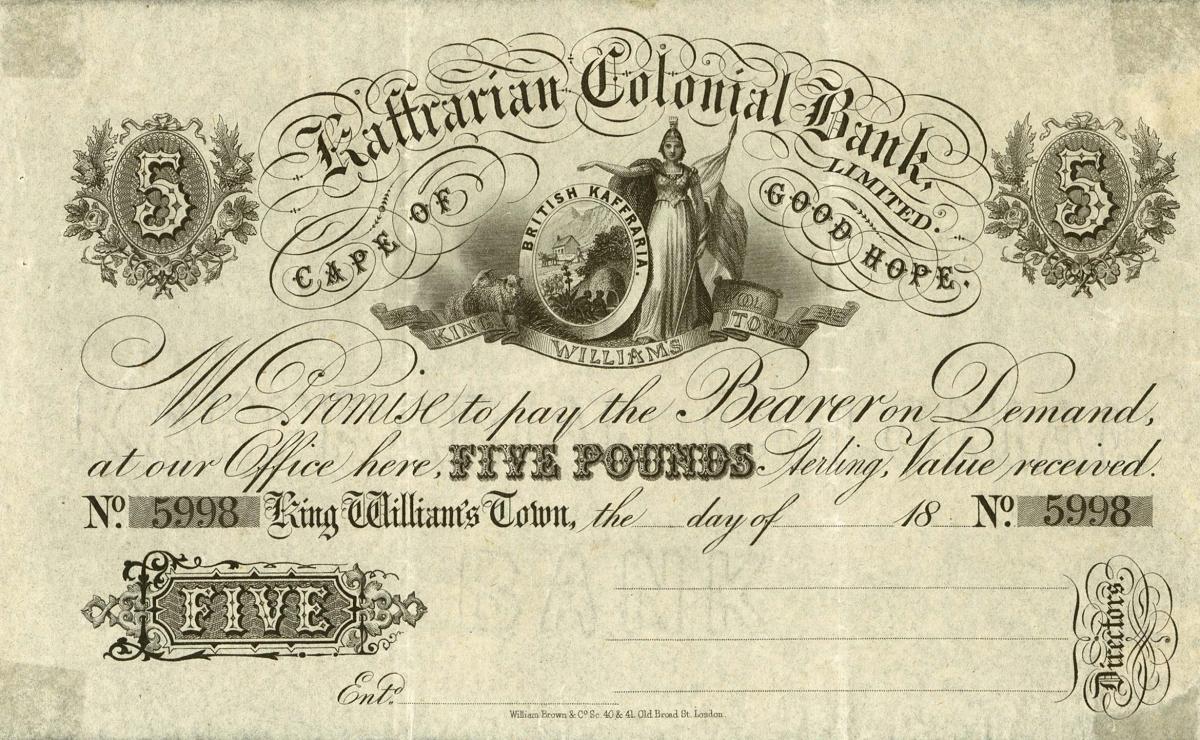 Kaffrarian Colonial Bank,
LIMITED.
CAPE OF GOOD HOPE.
5
5
BRITISH KAFFRARIA.
WOOL
KING WILLIAMS TOWN
We Promise to pay the Bearer on Demand,
at our Office here, FIVE POUNDS Sterling, Value received.
No. 5998 King William's Town, the day of 18 No. 5998
FIVE
Directors.
Entd.
William Brown & Co. Sc. 40 & 41. Old Broad St. London.